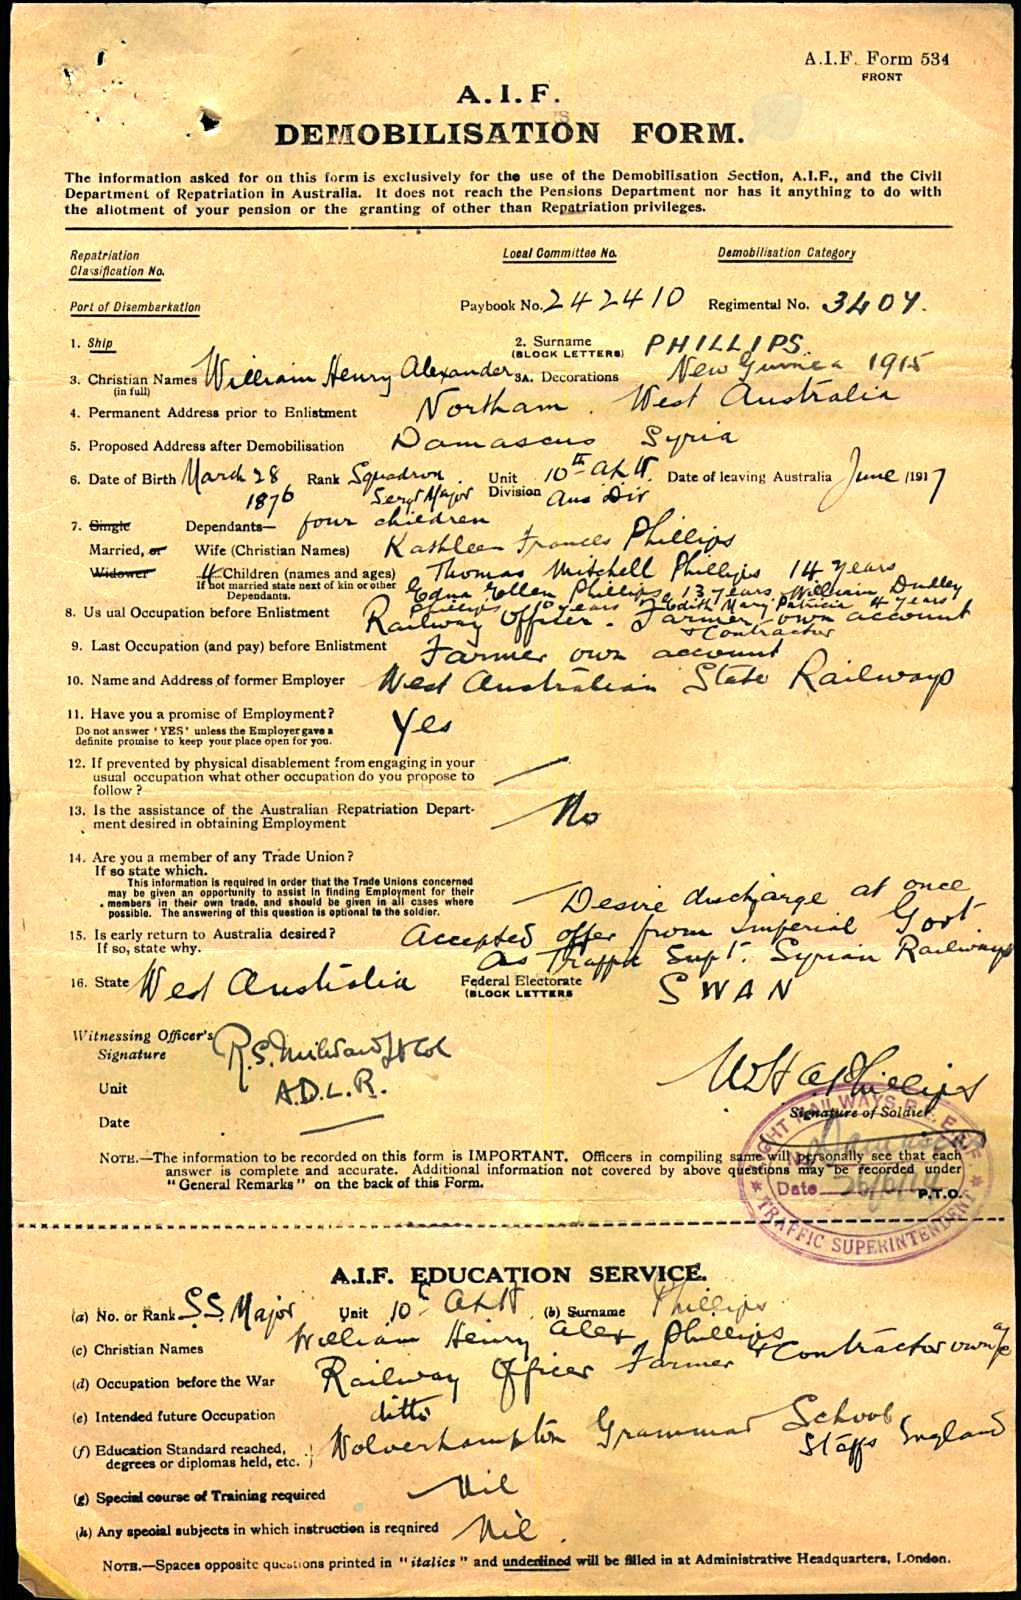 A.I.F. Form 534
FRONT
A.I.F.
DEMOBILISATION FORM.
The information asked for on this form is exclusively for the use of the Demobilisation Section, A.I.F., and the Civil
Department of Repatriation in Australia. It does not reach the Pensions Department nor has it anything to do with
the allotment of your pension or the granting of other than Repatriation privileges.
Repatriation Classification No.
Local Committee No.
Demobilisation Category
Port of Disembarkation
Paybook No. 242410 Regimental No. 3407.
1. Ship
2. Surname (BLOCK LETTERS) PHILLIPS.
3. Christian Names (in full) William Henry Alexander 3A. Decorations New Guinea 1915
4. Permanent Address prior to Enlistment Northam. West Australia
5. Proposed Address after Demobilisation Damascus Syria
6. Date of Birth March 28 1876 Rank Squadron Sergt Major Unit 10th ALH Division Aus Div Date of leaving Australia June /1917
7. Single Dependants— four children
Married, or Wife (Christian Names) Kathleen Frances Phillips
Widower 4 Children (names and ages) Thomas Mitchell Phillips 14 years
If not married state next of kin or other Dependants.
Edna Ellen Phillips 13 years William Dudley
Phillips 10 years Edith Mary Patricia 4 years
8. Us ual Occupation before Enlistment Railway Officer - Farmer own account
& Contractor
9. Last Occupation (and pay) before Enlistment Farmer own account
10. Name and Address of former Employer West Australian State Railways
11. Have you a promise of Employment? Yes
Do not answer 'YES' unless the Employer gave a
definite promise to keep your place open for you.
12. If prevented by physical disablement from engaging in your
usual occupation what other occupation do you propose to
follow?
13. Is the assistance of the Australian Repatriation Depart-
ment desired in obtaining Employment No
14. Are you a member of any Trade Union?
If so state which.
This information is required in order that the Trade Unions concerned
may be given an opportunity to assist in finding Employment for their
members in their own trade, and should be given in all cases where
possible. The answering of this question is optional to the soldier.
Desire discharge at once
15. Is early return to Australia desired? Accepted offer from Imperial Govt
If so, state why. As Traffic Supt. Syrian Railways
16. State West Australia Federal Electorate (BLOCK LETTERS SWAN
Witnessing Officer's Signature R.S. Milward Lt Col
Unit A.D.L.R.
WHA Phillips
Signature of Soldier.
Date
LIGHT RAILWAYS R.E., E.E.F.
Damascus
Date 26/6/19
TRAFFIC SUPERINTENDENT
NOTE.—The information to be recorded on this form is IMPORTANT. Officers in compiling same will personally see that each
answer is complete and accurate. Additional information not covered by above questions may be recorded under
"General Remarks" on the back of this Form.
P.T.O.
A.I.F. EDUCATION SERVICE.
(a) No. or Rank S.S. Major Unit 10th ALH (b) Surname Phillips
(c) Christian Names William Henry Alex Phillips
(d) Occupation before the War Railway Officer Farmer & Contractor own a/c
(e) Intended future Occupation ditto
(f) Education Standard reached, degrees or diplomas held, etc. Wolverhampton Grammar School
Staffs England
(g) Special course of Training required Nil
(h) Any special subjects in which instruction is required Nil.
NOTE.—Spaces opposite questions printed in "italics" and underlined will be filled in at Administrative Headquarters, London.